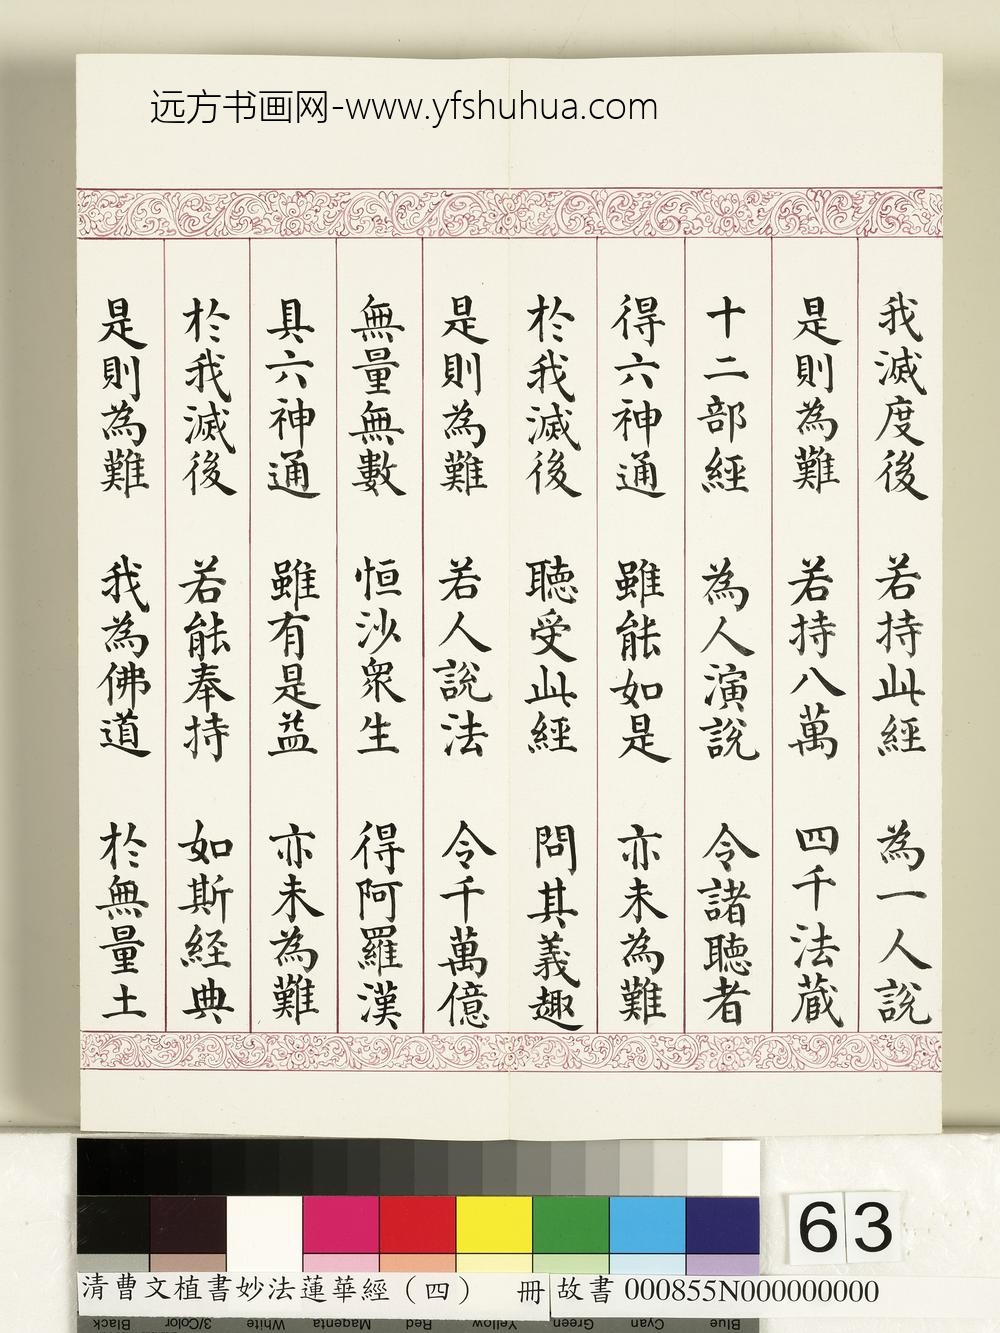 远方书画网-www.yfshuhua.com
我滅度後 若持此經 為一人說
是則為難 若持八萬 四千法蔵
十二部經 為人演說 令諸聽者
得六神通 雖能如是 亦未為難
於我滅後 聽受此經 問其義趣
是則為難 若人說法 令千萬億
無量無數 恒沙衆生 得阿羅漢
具六神通 雖有是益 亦未為難
於我滅後 若能奉持 如斯経典
是則為難 我為佛道 於無量土
63
清曹文植書妙法蓮華經（四） 冊 故書 000855N000000000
Black 3/Color White Magenta Red Yellow Green Cyan Blue